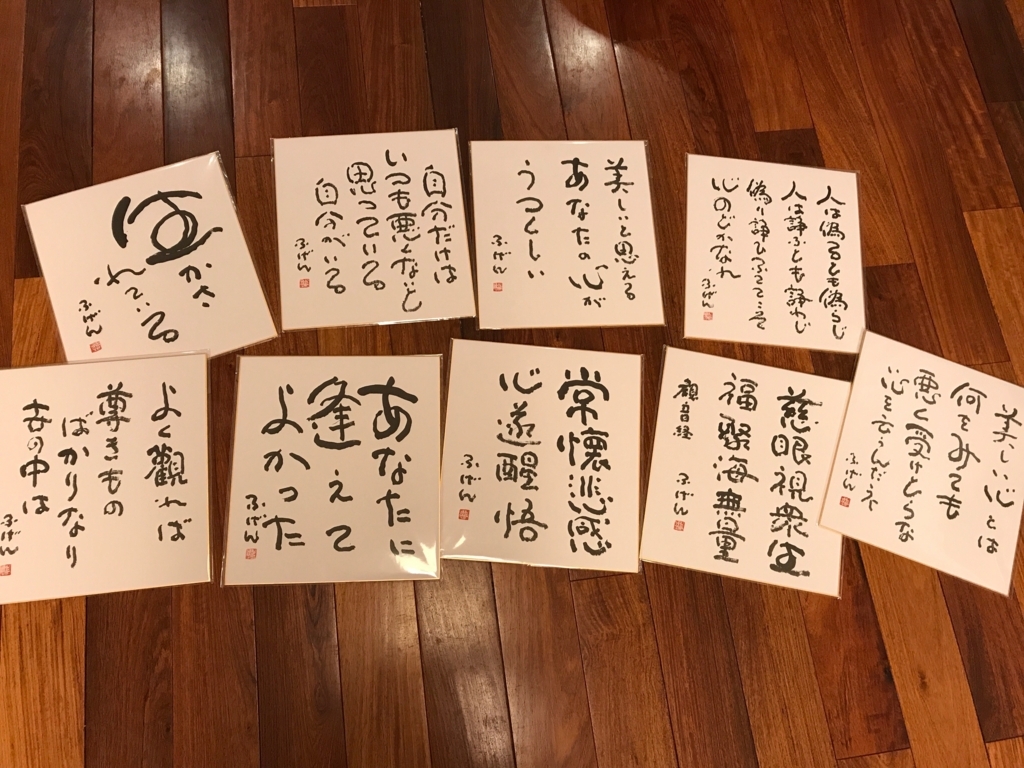 生かさ
れている
ふげん
自分だけは
いつも悪くないと
思っている
自分がいる
ふげん
美しいと思える
あなたの心が
うつくしい
ふげん
人は偽るとも偽らじ
人は諍ふとも諍わじ
偽り諍ひすててこそ
心のどかなれ
ふげん
よく観れば
尊きもの
ばかりなり
世の中は
ふげん
あなたに
逢えて
よかった
ふげん
常懐悲感
心遂醒悟
ふげん
慈眼視衆生
福聚海無量
観音経
ふげん
美しい心とは
何をみても
悪く受けとらな
心を
ふげん